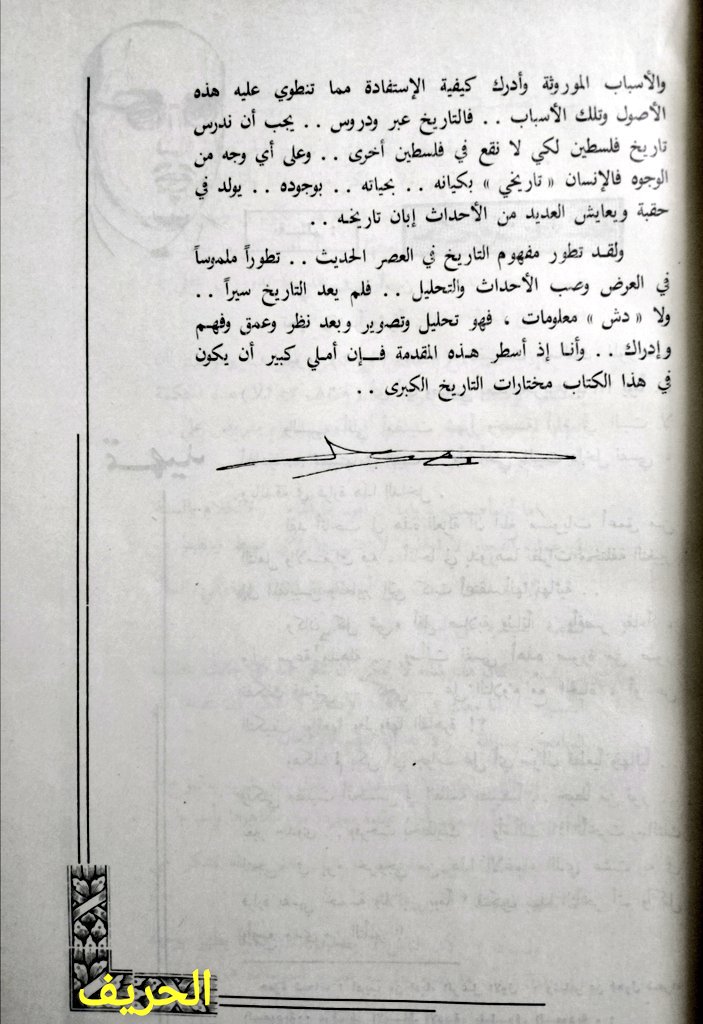 والأسباب الموروثة وأدرك كيفية الإستفادة مما تنطوي عليه هذه
الأصول وتلك الأسباب . . فالتاريخ عبر ودروس . . يجب أن ندرس
تاريخ فلسطين لكي لا نقع في فلسطين أخرى . . وعلى أي وجه من
الوجوه فالإنسان « تاريخي » بكيانه . . بحياته . . بوجوده . . يولد في
حقبة ويعايش العديد من الأحداث إبان تاريخه . .
ولقد تطور مفهوم التاريخ في العصر الحديث . . تطوراً ملموساً
في العرض وصب الأحداث والتحليل . . فلم يعد التاريخ سيراً . .
ولا « دش » معلومات ، فهو تحليل وتصوير وبعد نظر وعمق وفهم
وإدراك . . وأنا إذ أسطر هذه المقدمة فإن أملي كبير أن يكون
في هذا الكتاب مختارات التاريخ الكبرى . .
الحريف